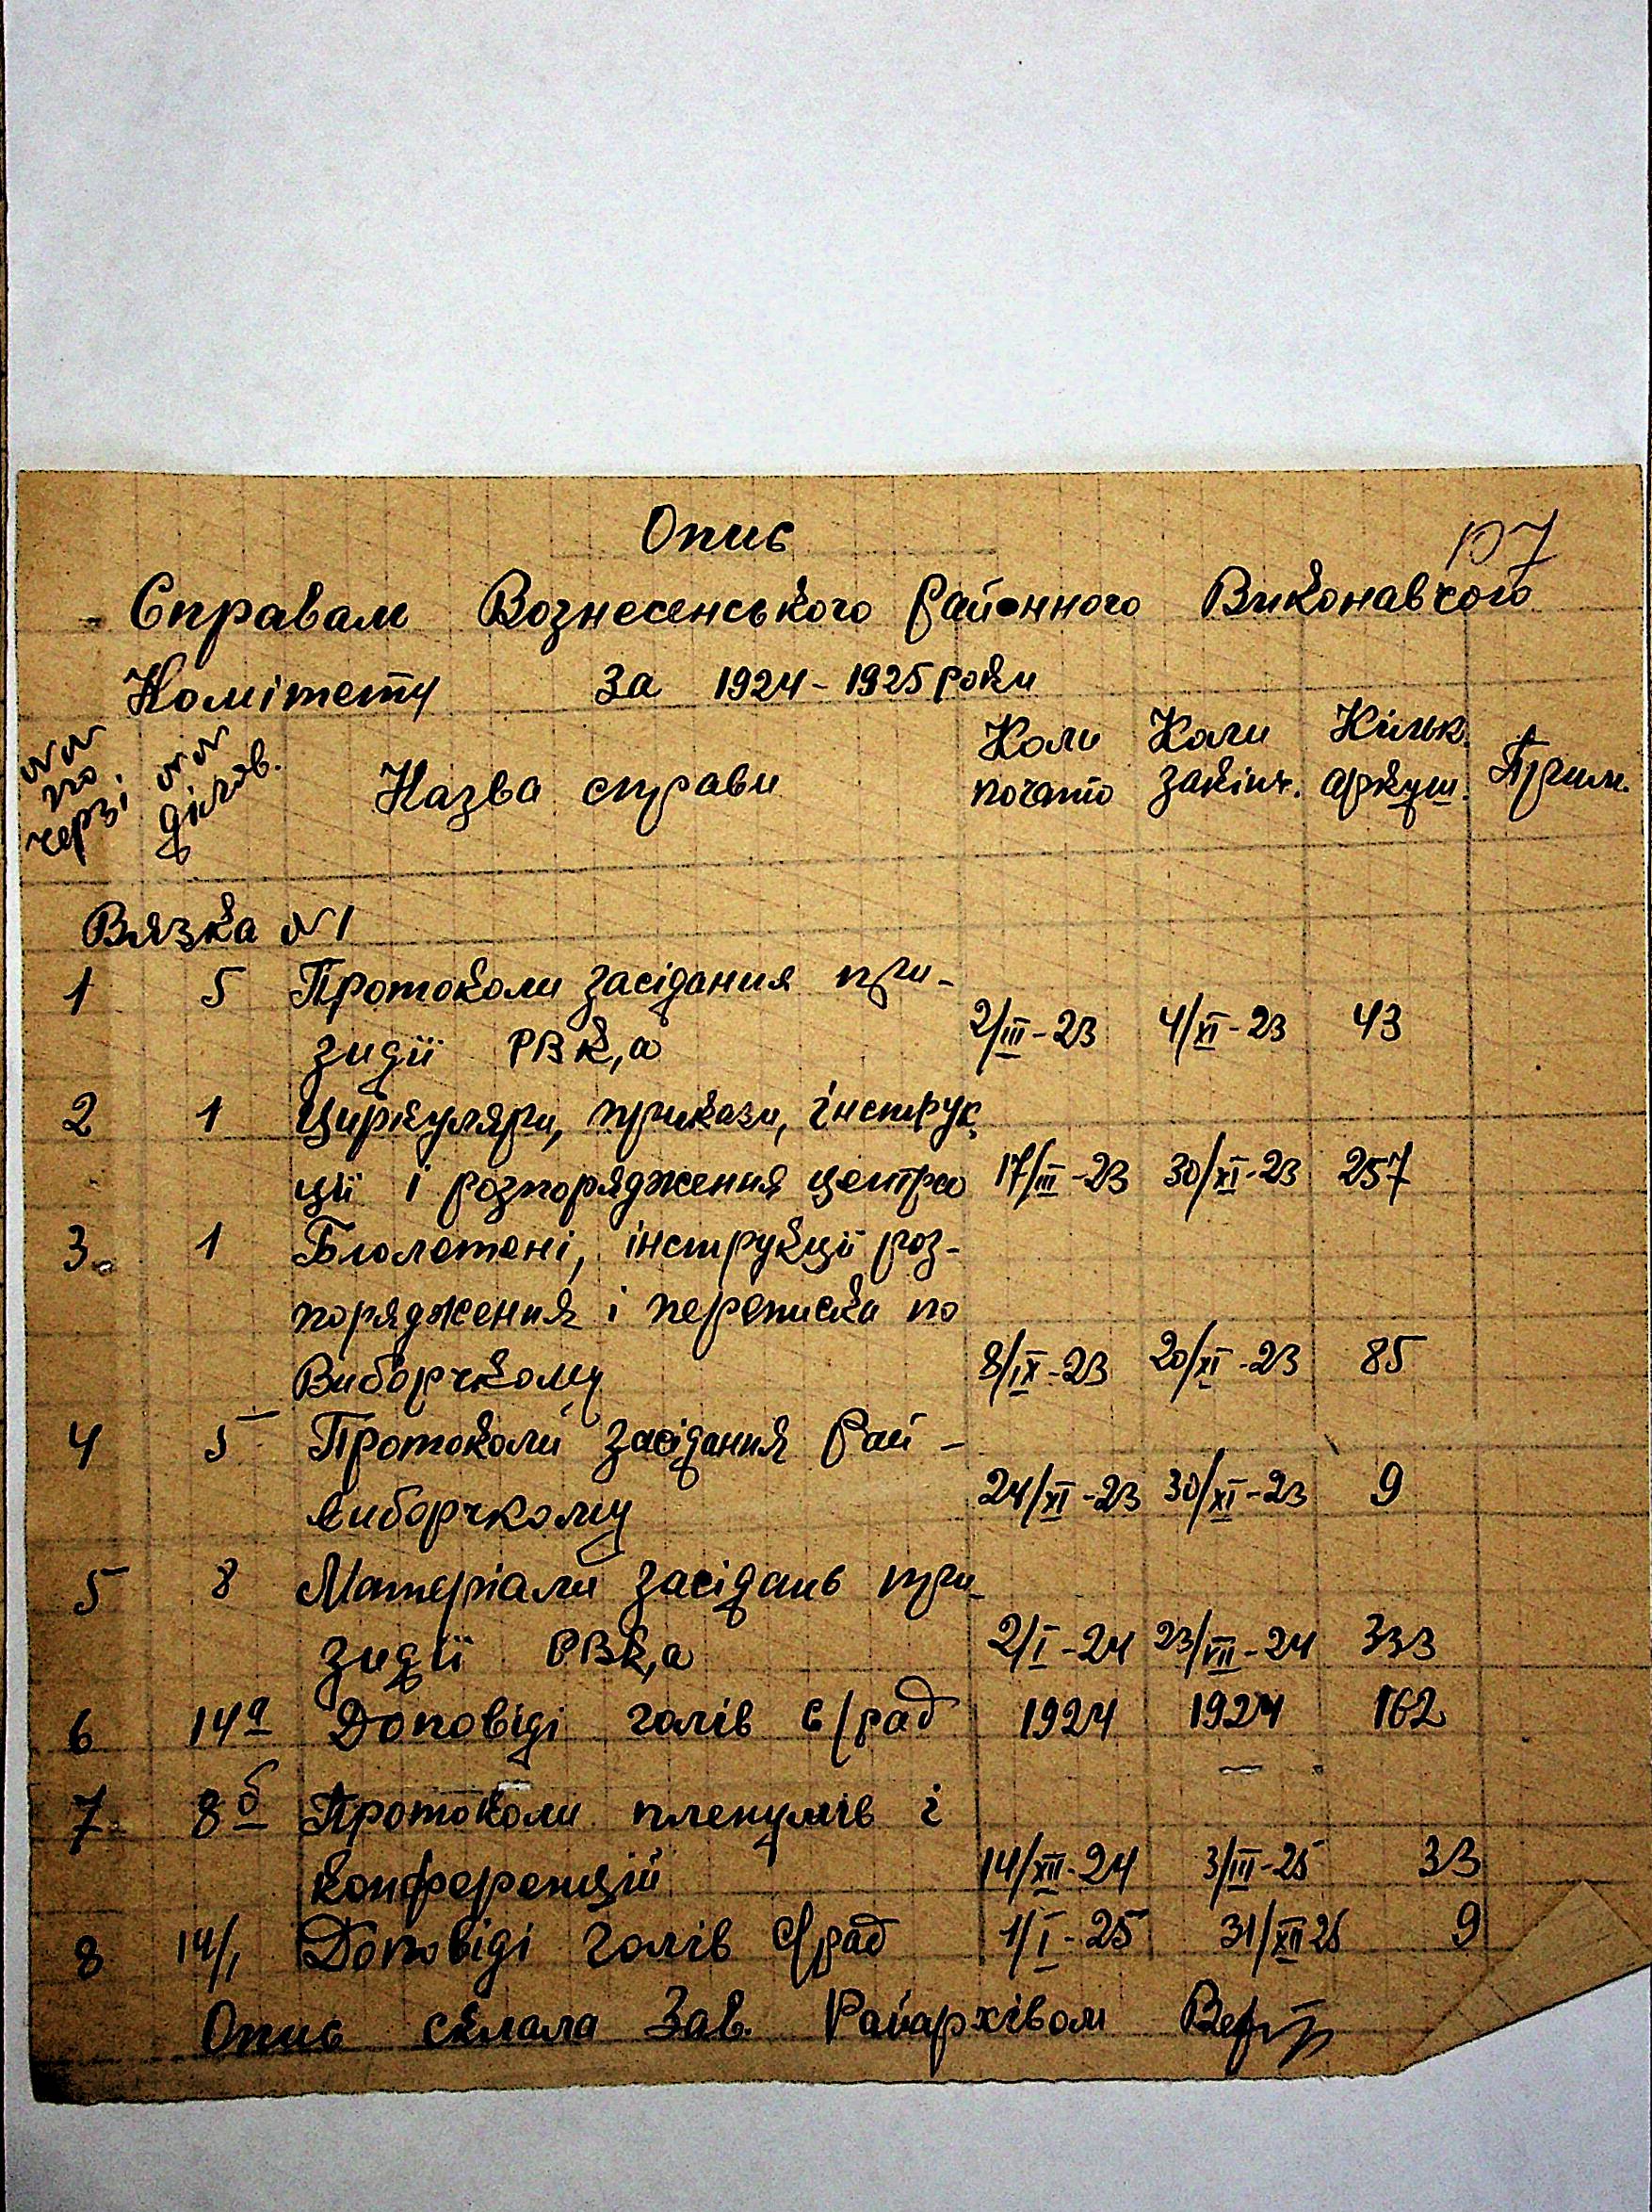 Опис
р7
Справам Вознесенського Районного Виконавчого
Комітету За 1924-1925 роки
№№ по черзі №№ діловв. Назва справи Коли почато Коли закінч. Кільк. аркуш. Прим.
Вязка №1
1 5 Протоколи засідання при-
зидії РВК,а 2/III-23 4/XI-23 43
2 1 Циркуляри, прикази, інструк
ції і розпорядження центра 17/III-23 30/XI-23 257
3. 1 Бюлетені, інструкції роз-
порядження і переписка по
Виборчкому 8/IX-23 20/XI-23 85
4 5 Протоколи засідання Рай-
виборчкому 24/XI-23 30/XI-23 9
5 8 Матеріали засідань при
зидії РВК,а 2/I-24 23/VII-24 333
6 14а Доповіді голів с/рад 1924 1924 162
7. 8б Протоколи пленумів і
конференцій 14/XII-24 3/III-25 33
8 14/1 Доповіді голів с/рад 1/I-25 31/XII 25 9
Опис склала Зав. Райархівом